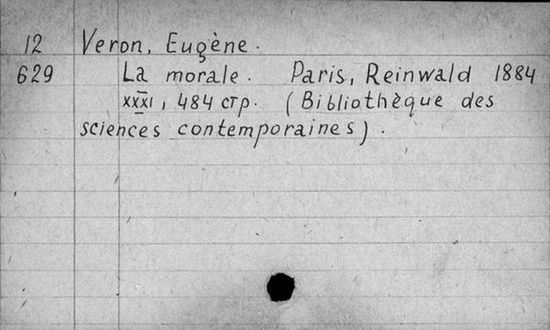 12 Veron, Eugène.
629 La morale. Paris, Reinwald 1884
XXXI, 484 стр. (Bibliothèque des
sciences contemporaines).